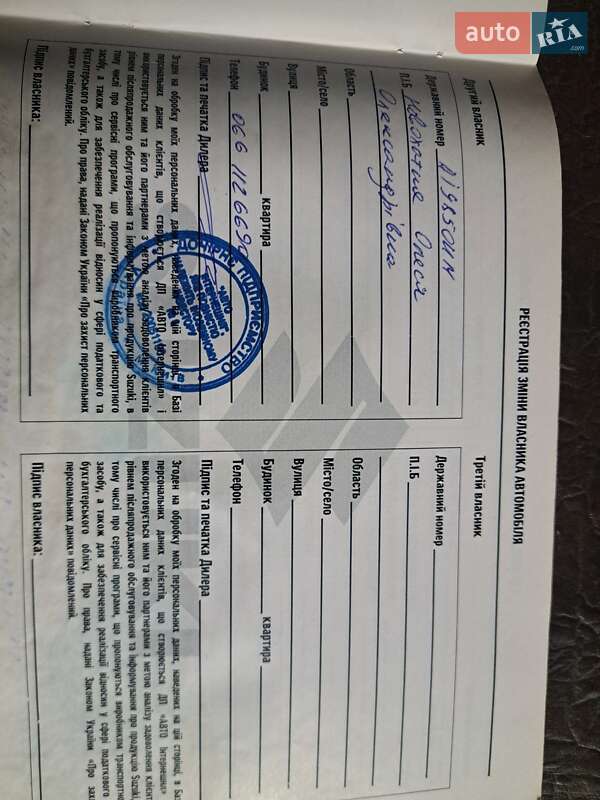 auto RIA
.com
РЕЄСТРАЦІЯ ЗМІНИ ВЛАСНИКА АВТОМОБІЛЯ
Другий власник
Державний номер
П.І.Б. Олеся
Олександрівна
Область
Місто/село
Вулиця
Будинок квартира
Телефон 066
Підпис та печатка Дилера
Згоден на обробку моїх персональних даних, наведених на цій сторінці, в Базі
персональних даних клієнтів, що створюється ДП «АВТО Інтернешнл» і
використовується ним та його партнерами з метою аналізу задоволення клієнтів
рівнем післяпродажного обслуговування та інформування про продукцію Suzuki, в
тому числі про сервісні програми, що пропонуються виробником транспортного
засобу, а також для забезпечення реалізації відносин у сфері податкового та
бухгалтерського обліку. Про права, надані Законом України «Про захист персональних
даних» повідомлений.
Підпис власника:
ДОЧІРНЄ ПІДПРИЄМСТВО
Третій власник
Державний номер
П.І.Б
Область
Місто/село
Вулиця
Будинок квартира
Телефон
Підпис та печатка Дилера
Згоден на обробку моїх персональних даних, наведених на цій сторінці, в Баз
персональних даних клієнтів, що створюється ДП «АВТО Інтернешнл»
використовується ним та його партнерами з метою аналізу задоволення клієнт
рівнем післяпродажного обслуговування та інформування про продукцію Suzuki,
тому числі про сервісні програми, що пропонуються виробником транспортно
засобу, а також для забезпечення реалізації відносин у сфері податкового
бухгалтерського обліку. Про права, надані Законом України «Про зах
персональних даних» повідомлений.
Підпис власника: